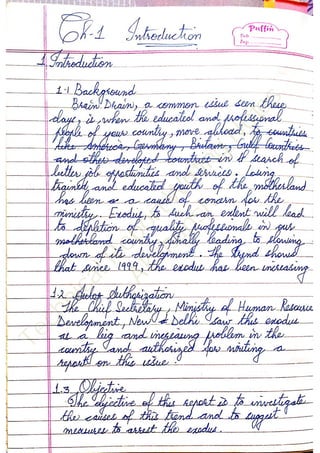 Ch-1 Introduction
Puffin
Date
Page
1. Introduction
1.1 Background
Brain Drain, a common issue seen these
days, is when the educated and professional
people of your country, move abroad, to countries
like America, Germany, Britain, Gulf Countries
and other developed countries in search of
better job opportunities and services. Losing
trained and educated youth of the motherland
has been a cause of concern for the
ministry. Exodus, to such an extent will lead
to depletion of quality professionals in our
motherland country, finally leading to slowing
down of its development. The trend shows
that since 1999, the exodus has been increasing
1.2 Authorization
The Chief Secretary, Ministry of Human Resource
Development, New Delhi saw this exodus
as a big and increasing problem in the
country and authorized for writing a
report on this issue
1.3 Objective
The objective of this report is to investigate
the causes of this trend and to suggest
measures to arrest the exodus.